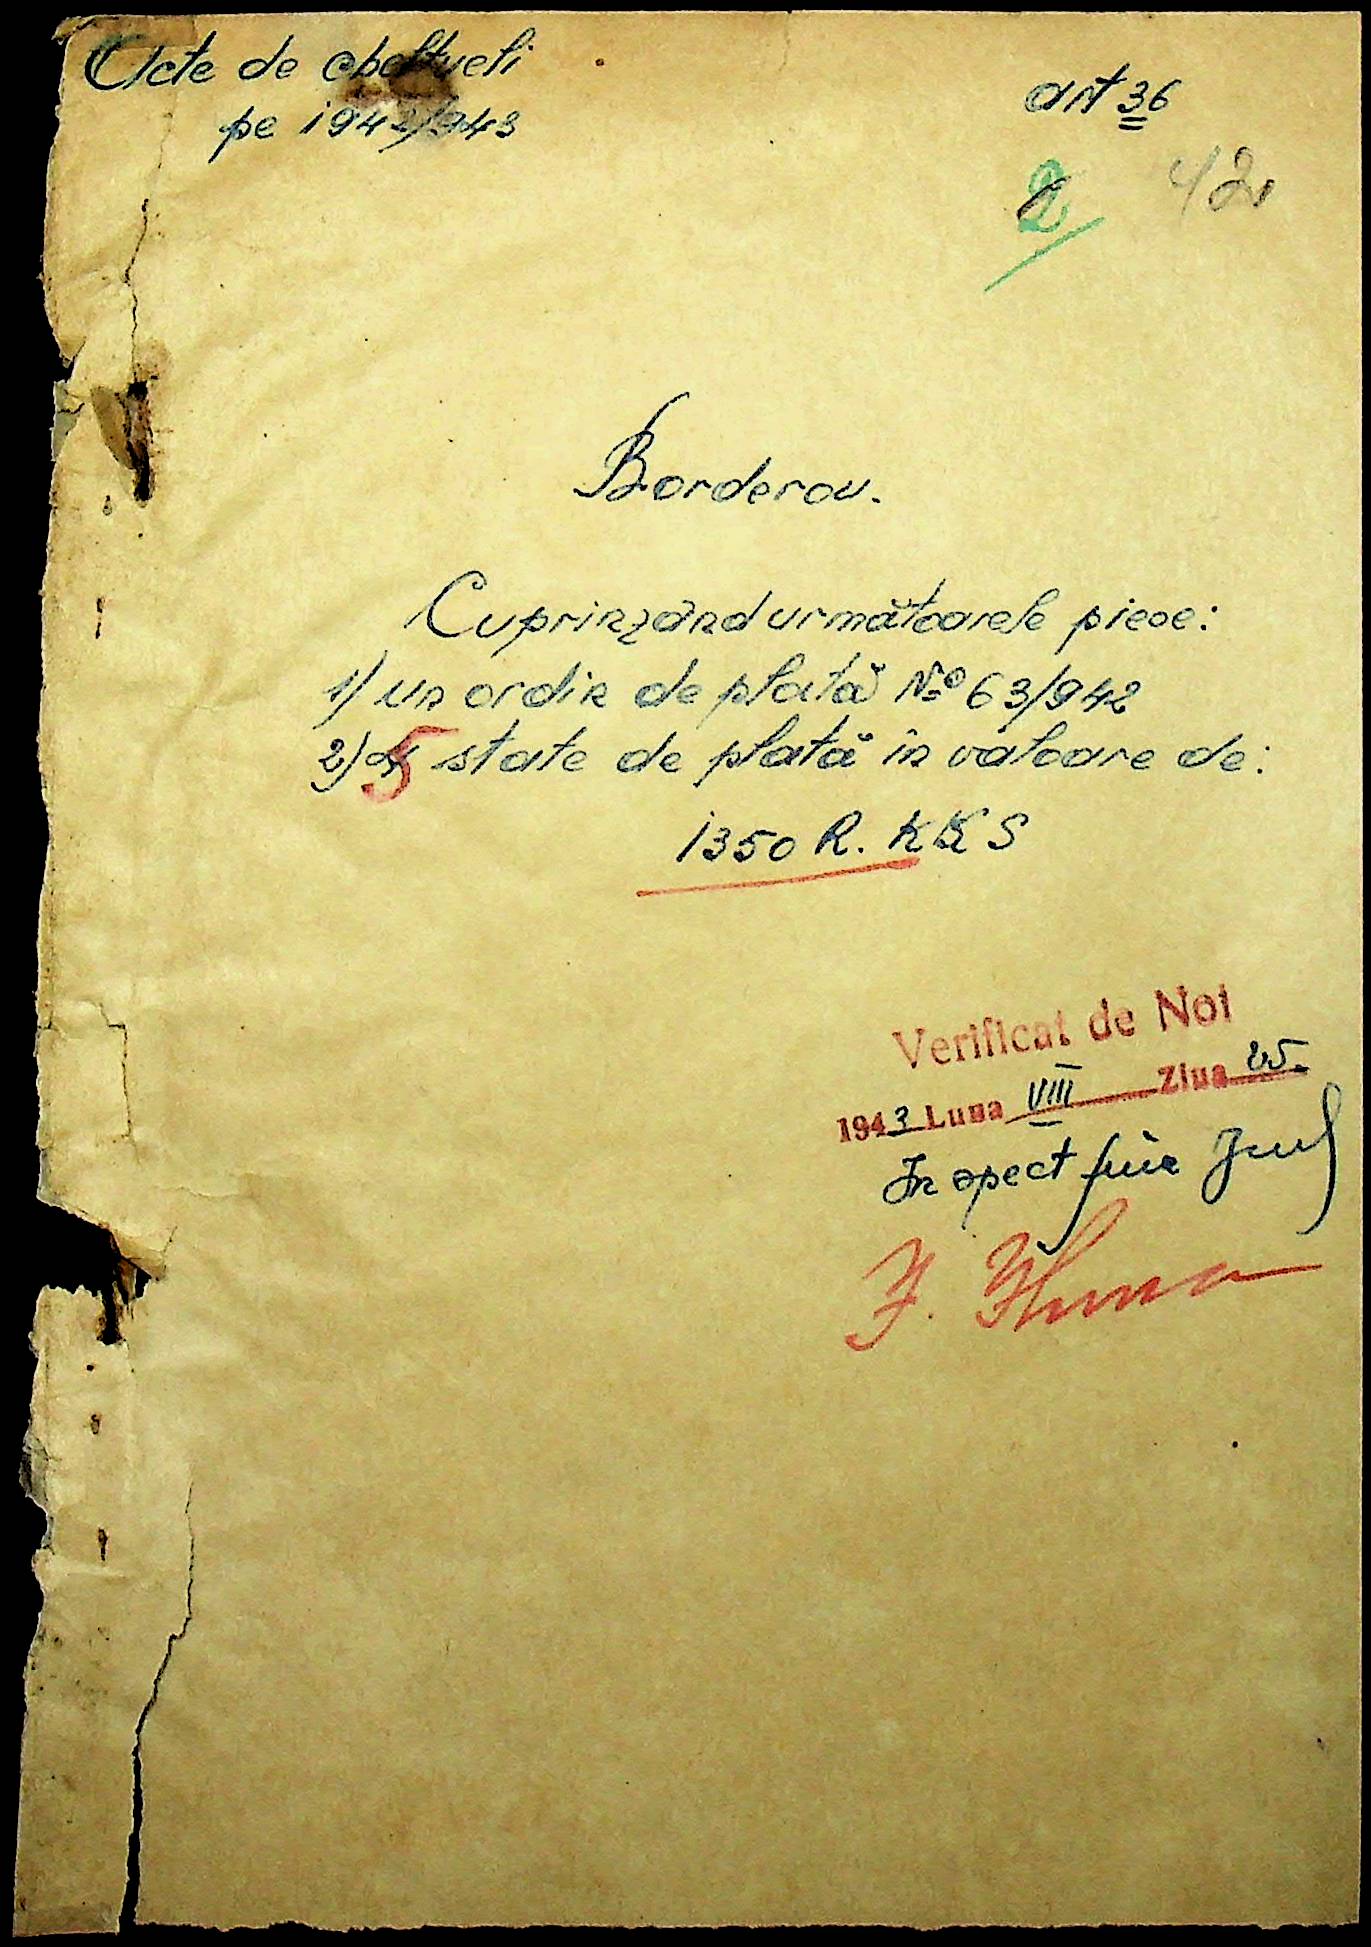 Acte de cheltueli
pe 1942/943
art 36
2
42
Borderou.
Cuprinzând următoarele piese:
1) un ordin de plată No 63/942
2) 5 state de plată în valoare de:
1350 R. KKS
Verificat de Noi
1943 Luna VIII Ziua 25.
Inspect